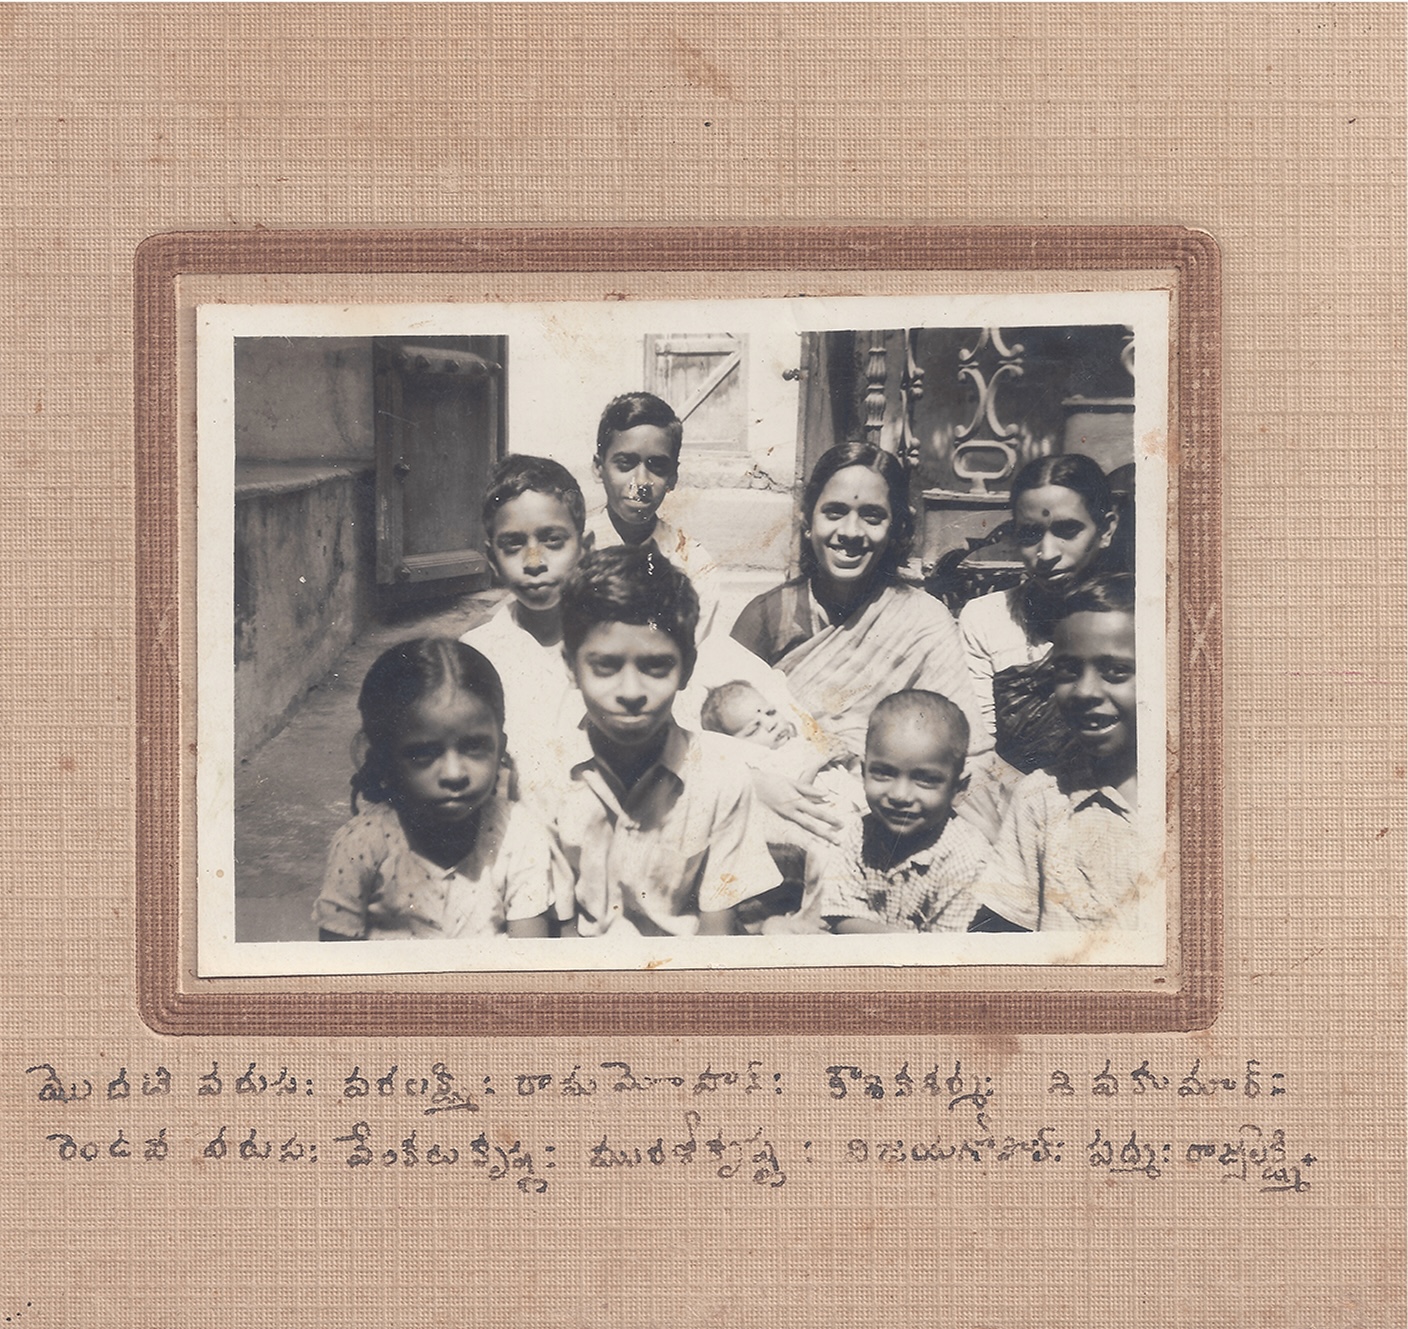 మొదటి వరుస: వరలక్ష్మి: రామమోహన్: కౌశికశర్మ: శివకుమార్:
రెండవ వరుస: వేంకటకృష్ణ: మురళీకృష్ణ: విజయగోపాల్: పద్మ: రాజ్యలక్ష్మి.